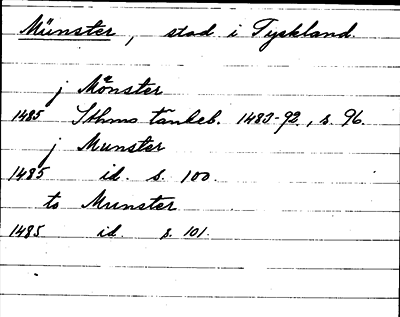 Münster, stad i Tyskland.
j Mönster
1485 Sthms tänkeb. 1483-92, s. 96.
j Munster
1485 id. s. 100.
to Munster
1485 id. s. 101.